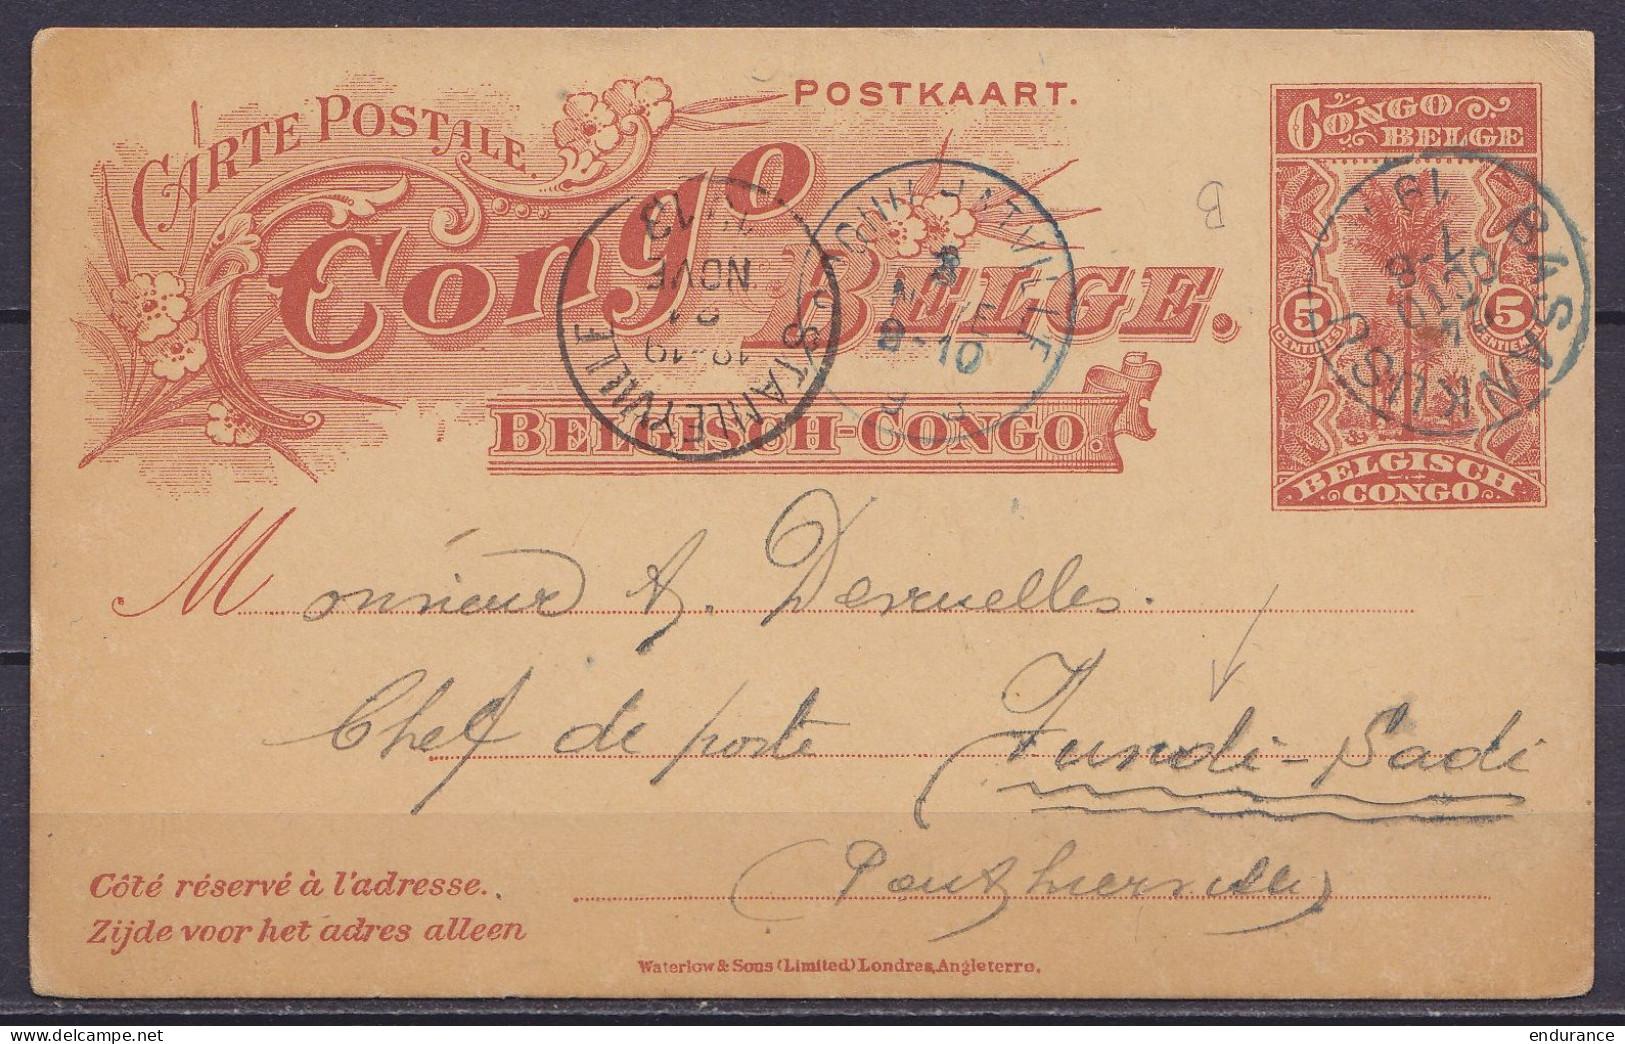 CARTE POSTALE.
POSTKAART.
Congo
BELGE.
BELGISCH-CONGO.
CONGO
BELGE
5 5
CENTIMES CENTIEMEN
BELGISCH
CONGO
STANLEYVILLE
13
NOVE
18-19
8-10
BASANKUSU
7-8
OCTO
B
Monsieur A. Deruelles.
Chef de poste Fundi-Sadi
(Ponthierville)
Côté réservé à l'adresse.
Zijde voor het adres alleen
Waterlow & Sons (Limited) Londres, Angleterre.
endurance